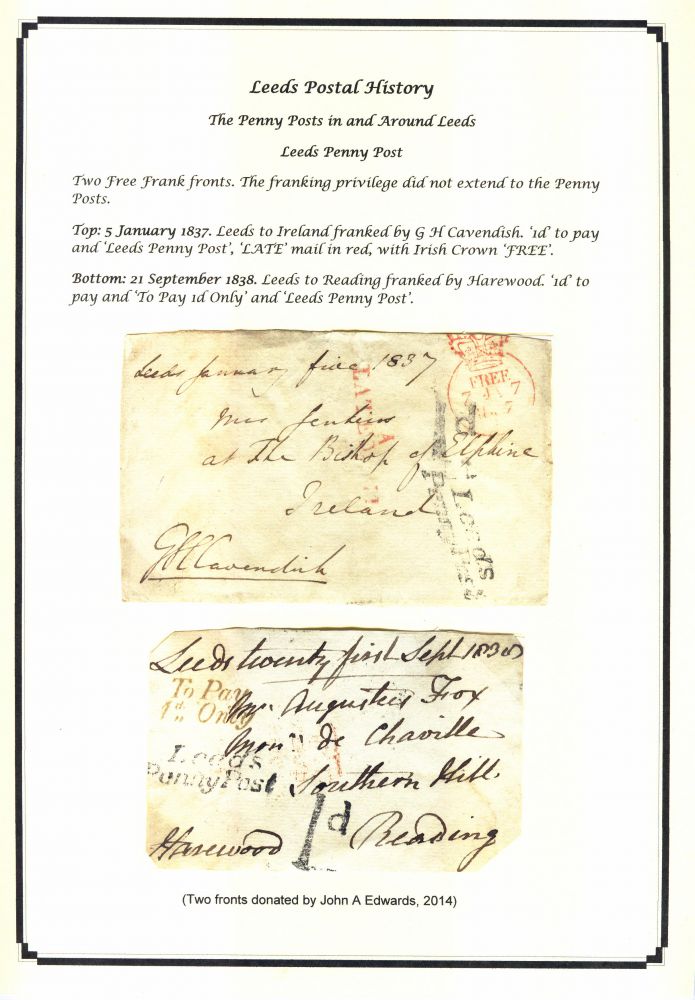 Leeds Postal History
The Penny Posts in and Around Leeds
Leeds Penny Post
Two Free Frank fronts. The franking privilege did not extend to the Penny
Posts.
Top: 5 January 1837. Leeds to Ireland franked by G H Cavendish. ‘1d’ to pay
and ‘Leeds Penny Post’, ‘LATE’ mail in red, with Irish Crown ‘FREE’.
Bottom: 21 September 1838. Leeds to Reading franked by Harewood. ‘1d’ to
pay and ‘To Pay 1d Only’ and ‘Leeds Penny Post’.
Leeds January five 1837
FREE
7 JA 7
at the Bishop of Elphine
Ireland
GHCavendish
1d
Leeds
Penny Post
Leeds twenty first Sept 1838
To Pay
1d Only
Mr Augustus Fox
de Chaville
Leeds
Penny Post
Southern Hill
1d
Harewood
Reading
(Two fronts donated by John A Edwards, 2014)